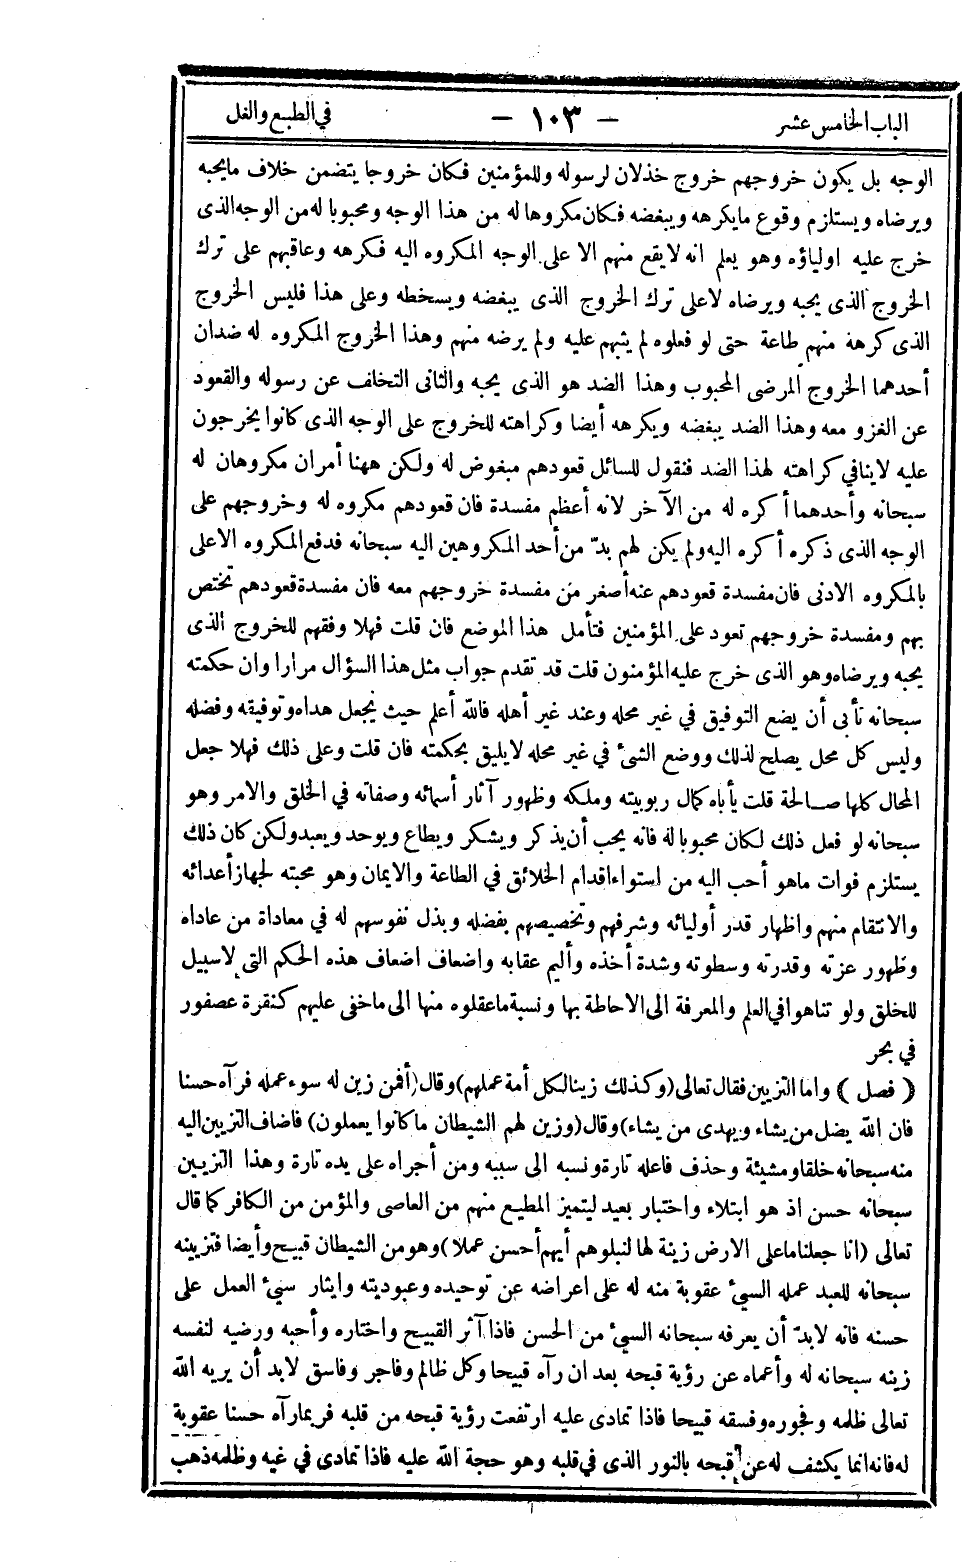 الباب الخامس عشر — ١٠٣ — في الطبع والفل
الوجه بل يكون خروجهم خروج خذلان لرسوله وللمؤمنين فكان خروجا يتضمن خلاف مايحبه
ويرضاه ويستلزم وقوع مايكرهه ويبغضه فكان مكروها له من هذا الوجه ومحبوبا له من الوجه الذى
خرج عليه اولياؤه وهو يعلم انه لايقع منهم الا على الوجه المكروه اليه فكرهه وعاقبهم على ترك
الخروج الذى يحبه ويرضاه لاعلى ترك الخروج الذى يبغضه ويسخطه وعلى هذا فليس الخروج
الذى كرهه منهم طاعة حتى لو فعلوه لم يثبهم عليه ولم يرضه منهم وهذا الخروج المكروه له ضدان
أحدهما الخروج المرضى المحبوب وهذا الضد هو الذى يحبه والثانى التخلف عن رسوله والقعود
عن الغزو معه وهذا الضد يبغضه ويكرهه أيضا وكراهته للخروج على الوجه الذى كانوا يخرجون
عليه لاينافي كراهته لهذا الضد فنقول للسائل قعودهم مبغوض له ولكن ههنا أمران مكروهان له
سبحانه وأحدهما أكره له من الآخر لانه أعظم مفسدة فان قعودهم مكروه له وخروجهم على
الوجه الذى ذكره أكره اليه ولم يكن لهم بدّ من أحد المكروهين اليه سبحانه فدفع المكروه الاعلى
بالمكروه الادنى فان مفسدة قعودهم عنه أصغر من مفسدة خروجهم معه فان مفسدة قعودهم تختص
بهم ومفسدة خروجهم تعود على المؤمنين فتأمل هذا الموضع فان قلت فهلا وفقهم للخروج الذى
يحبه ويرضاه وهو الذى خرج عليه المؤمنون قلت قد تقدم جواب مثل هذا السؤال مرارا وان حكمته
سبحانه تأبى أن يضع التوفيق في غير محله وعند غير أهله فالله أعلم حيث يجعل هداه وتوفيقه وفضله
وليس كل محل يصلح لذلك ووضع الشئ في غير محله لايليق بحكمته فان قلت وعلى ذلك فهلا جعل
المحال كلها صالحة قلت يأباه كمال ربوبيته وملكه وظهور آثار أسمائه وصفاته في الخلق والامر وهو
سبحانه لو فعل ذلك لكان محبوبا له فانه يحب أن يذكر ويشكر ويطاع ويوحد ويعبد ولكن كان ذلك
يستلزم فوات ماهو أحب اليه من استواء اقدام الخلائق في الطاعة والايمان وهو محبته لجهاز أعدائه
والانتقام منهم واظهار قدر أوليائه وشرفهم وتخصيصهم بفضله وبذل نفوسهم له في معاداة من عاداه
وظهور عزته وقدرته وسطوته وشدة أخذه وأليم عقابه واضعاف اضعاف هذه الحكم التى لاسبيل
للخلق ولو تناهوا في العلم والمعرفة الى الاحاطة بها ونسبة ماعقلوه منها الى ماخفى عليهم كنقرة عصفور
في بحر
﴿ فصل ﴾ واما التزيين فقال تعالى (وكذلك زينا لكل أمة عملهم) وقال (أفمن زين له سوء عمله فرآه حسنا
فان الله يضل من يشاء ويهدى من يشاء) وقال (وزين لهم الشيطان ماكانوا يعملون) فاضاف التزيين اليه
منه سبحانه خلقا ومشيئة وحذف فاعله تارة ونسبه الى سببه ومن أجراه على يده تارة وهذا التزيين
سبحانه حسن اذ هو ابتلاء واختبار بعيد ليتميز المطيع منهم من العاصى والمؤمن من الكافر كما قال
تعالى (انا جعلنا ماعلى الارض زينة لها لنبلوهم أيهم أحسن عملا) وهو من الشيطان قبيح وأيضا فتزيينه
سبحانه للعبد عمله السيئ عقوبة منه له على اعراضه عن توحيده وعبوديته وايثار سيئ العمل على
حسنه فانه لابدّ أن يعرفه سبحانه السيئ من الحسن فاذا آثر القبيح واختاره وأحبه ورضيه لنفسه
زينه سبحانه له وأعماه عن رؤية قبحه بعد ان رآه قبيحا وكل ظالم وفاجر وفاسق لابد أن يريه الله
تعالى ظلمه وفجوره وفسقه قبيحا فاذا تمادى عليه ارتفعت رؤية قبحه من قلبه فربما رآه حسنا عقوبة
له فانه انما يكشف له عن قبحه بالنور الذى في قلبه وهو حجة الله عليه فاذا تمادى في غيه وظلمه ذهب